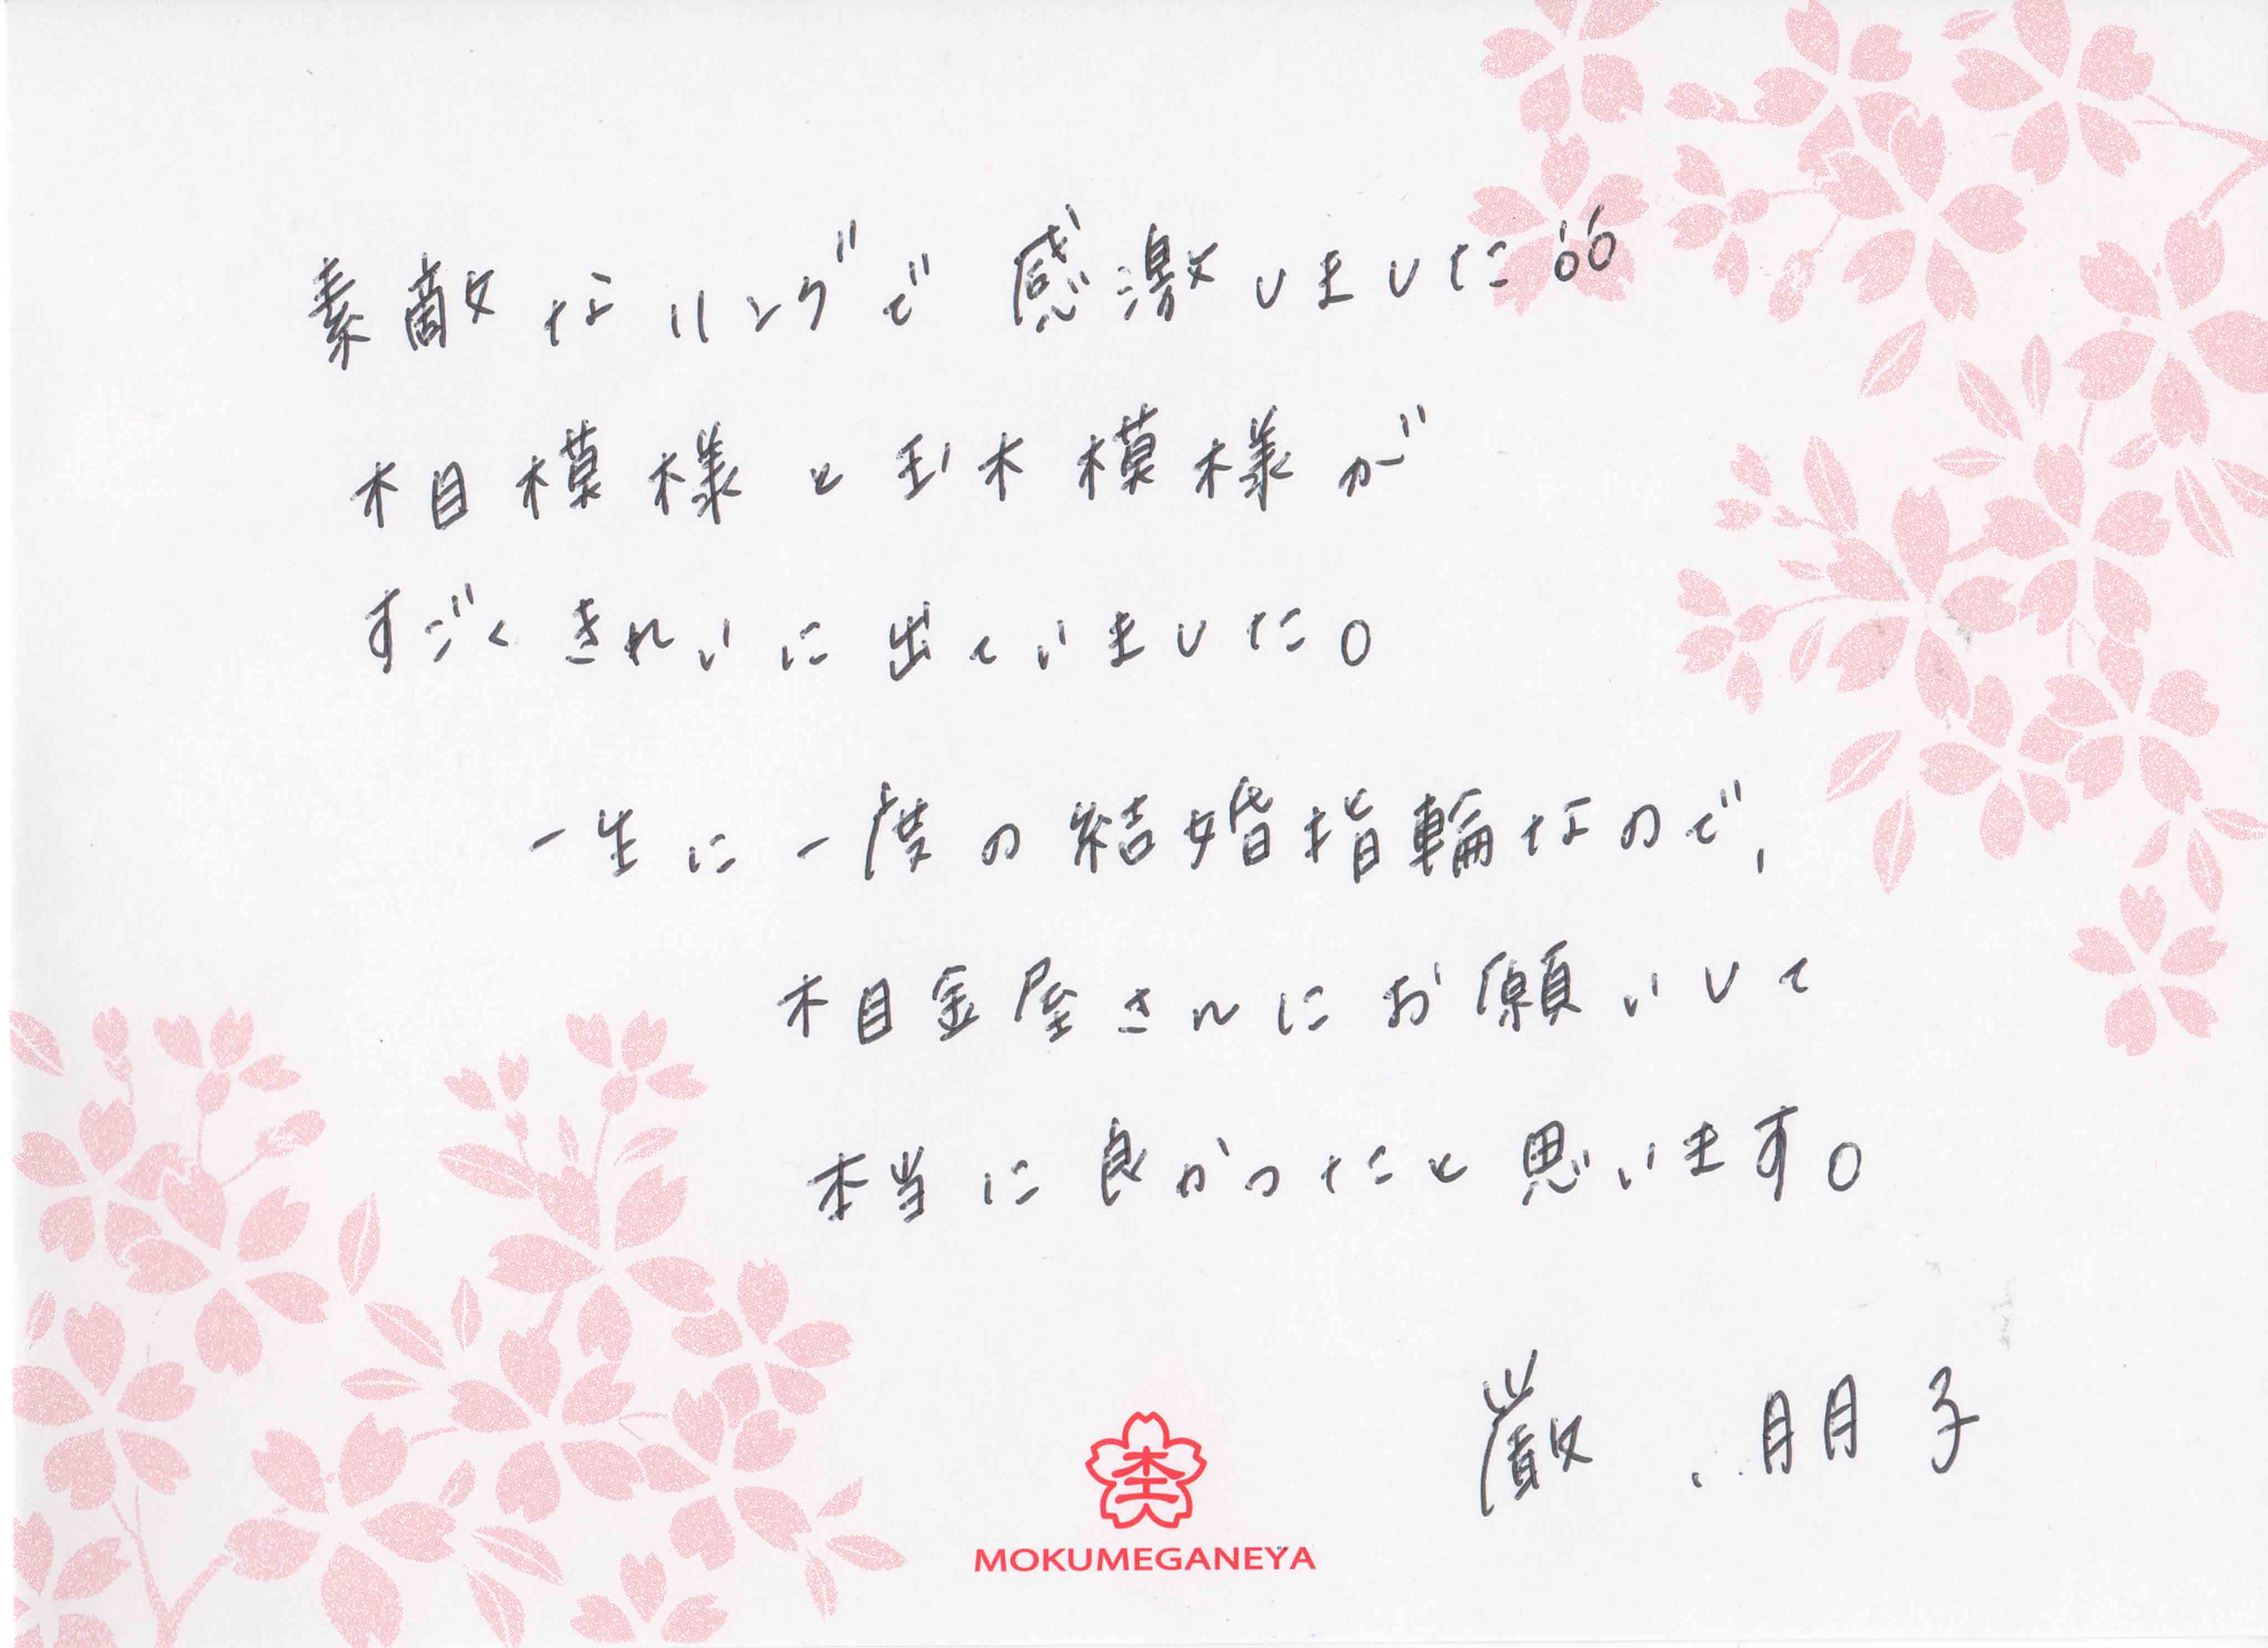 素敵なリングで感激しました!!
木目模様と玉木模様が
すごくきれいに出ていました。
一生に一度の結婚指輪なので、
木目金屋さんにお願いして
本当に良かったと思います。
巌、朋子
MOKUMEGANEYA